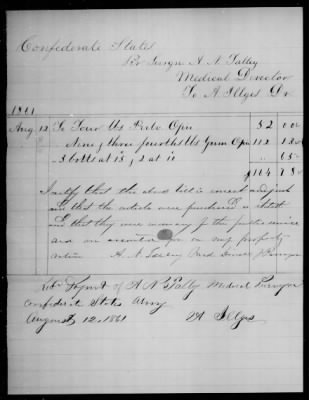 Confederate States
Pr Surgn A. N. Talley
Medical Director
To A. Illges Dr
1861
Aug. 12 To Four lbs Pulv Opii 52 00
" Nine & three fourths lbs Gum Opii 112 13
" 5 botts at 15, 2 at 10 65
$164 78
I certify that the above bill is correct and just
and that the article were purchased as stated
& that they were necessary for the public service
and are accounted for on my property
return A. N. Talley Med. Director
Recd Payment of A N Talley Medical Purveyor
Confederate States Army
August 12, 1861 A Illges